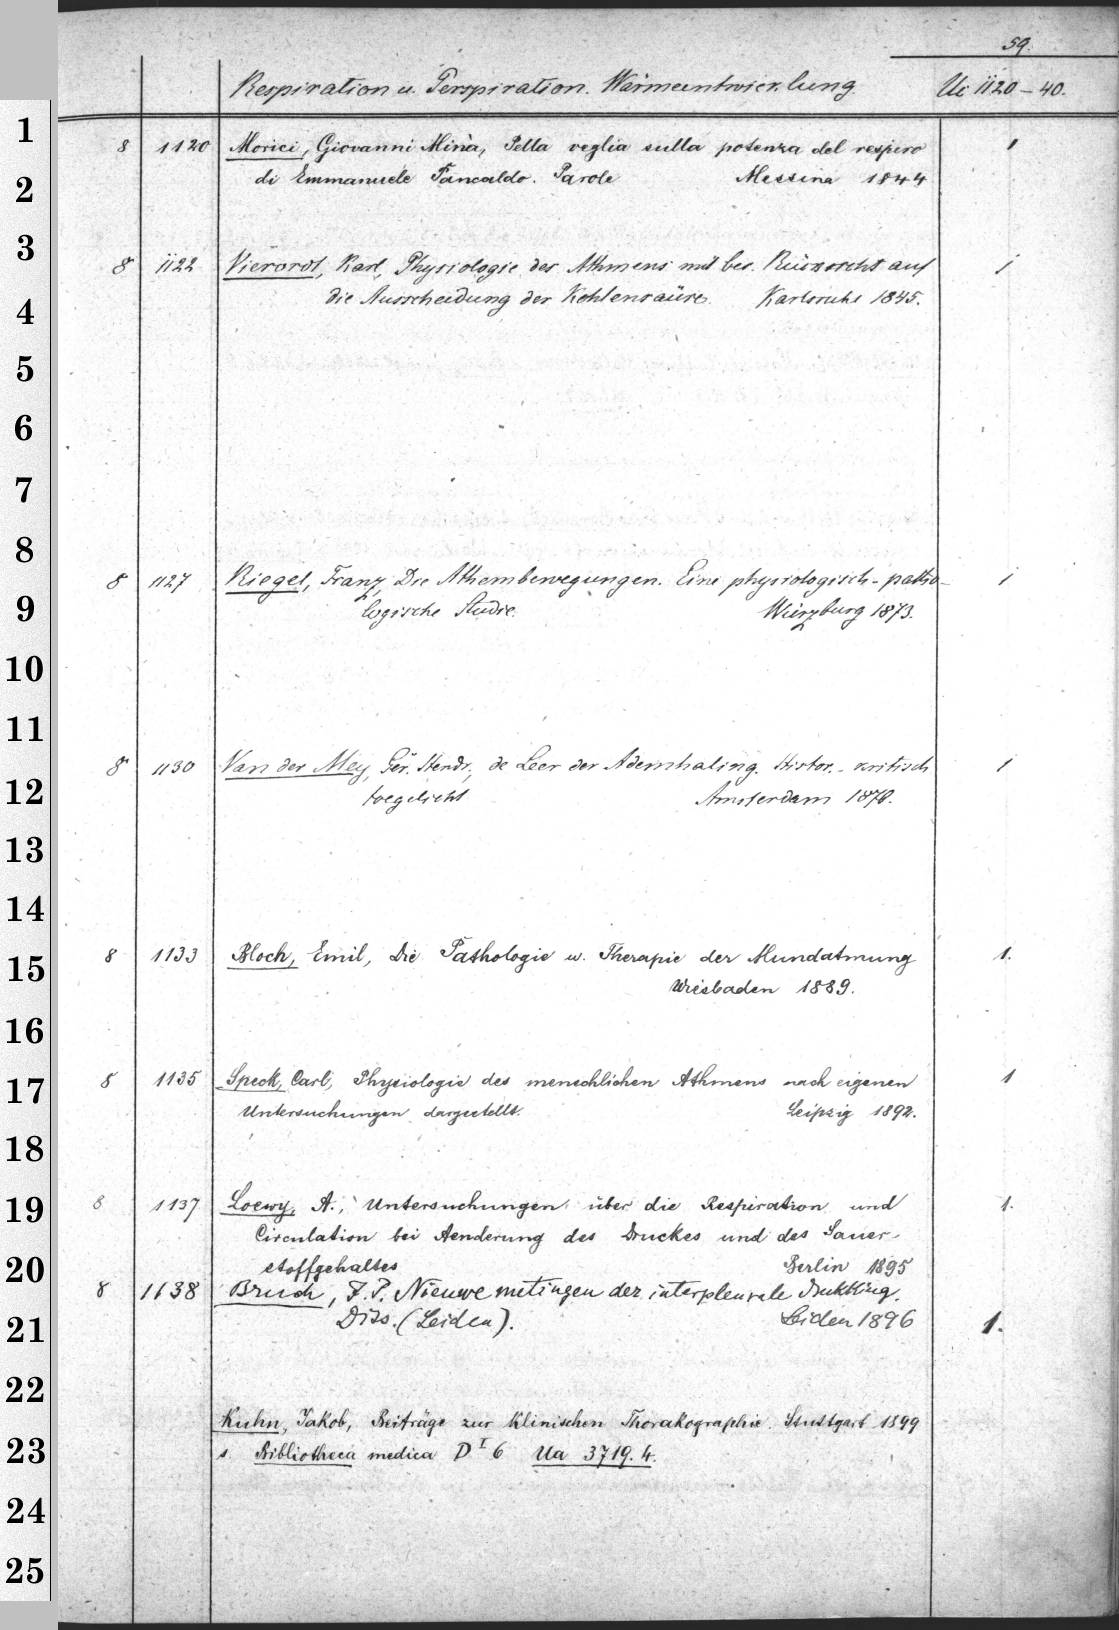 59.
Respiration u. Perspiration. Wärmeentwicklung. Uc 1120-40.
8 1120 Morici, Giovanni Minà, Della veglia sulla potenza del respiro 1
di Emmanuele Pancaldo. Parole Messina 1844
8 1122 Vierordt, Karl, Physiologie des Athmens mit bes. Rücksicht auf 1
die Ausscheidung der Kohlensäure. Karlsruhe 1845.
8 1127 Riegel, Franz, Die Athembewegungen. Eine physiologisch-patho- 1
logische Studie. Würzburg 1873.
8 1130 Van der Mey, Ger. Hendr., de Leer der Ademhaling. Histor.-kritisch 1
toegelicht Amsterdam 1870.
8 1133 Bloch, Emil, Die Pathologie u. Therapie der Mundatmung 1.
Wiesbaden 1889.
8 1135 Speck, Carl, Physiologie des menschlichen Athmens nach eigenen 1
Untersuchungen dargestellt. Leipzig 1892.
8 1137 Loewy, A., Untersuchungen über die Respiration und 1.
Circulation bei Aenderung des Druckes und des Sauer-
stoffgehaltes Berlin 1895
8 1138 Bruch, F.P. Nieuwe metingen der interpleurale Drukking.
Diss. (Leiden). Leiden 1896 1.
Kuhn, Jakob, Beiträge zur klinischen Thorakographie. Stuttgart 1899
s. Bibliotheca medica D I 6 Ua 3719.4.
1
2
3
4
5
6
7
8
9
10
11
12
13
14
15
16
17
18
19
20
21
22
23
24
25